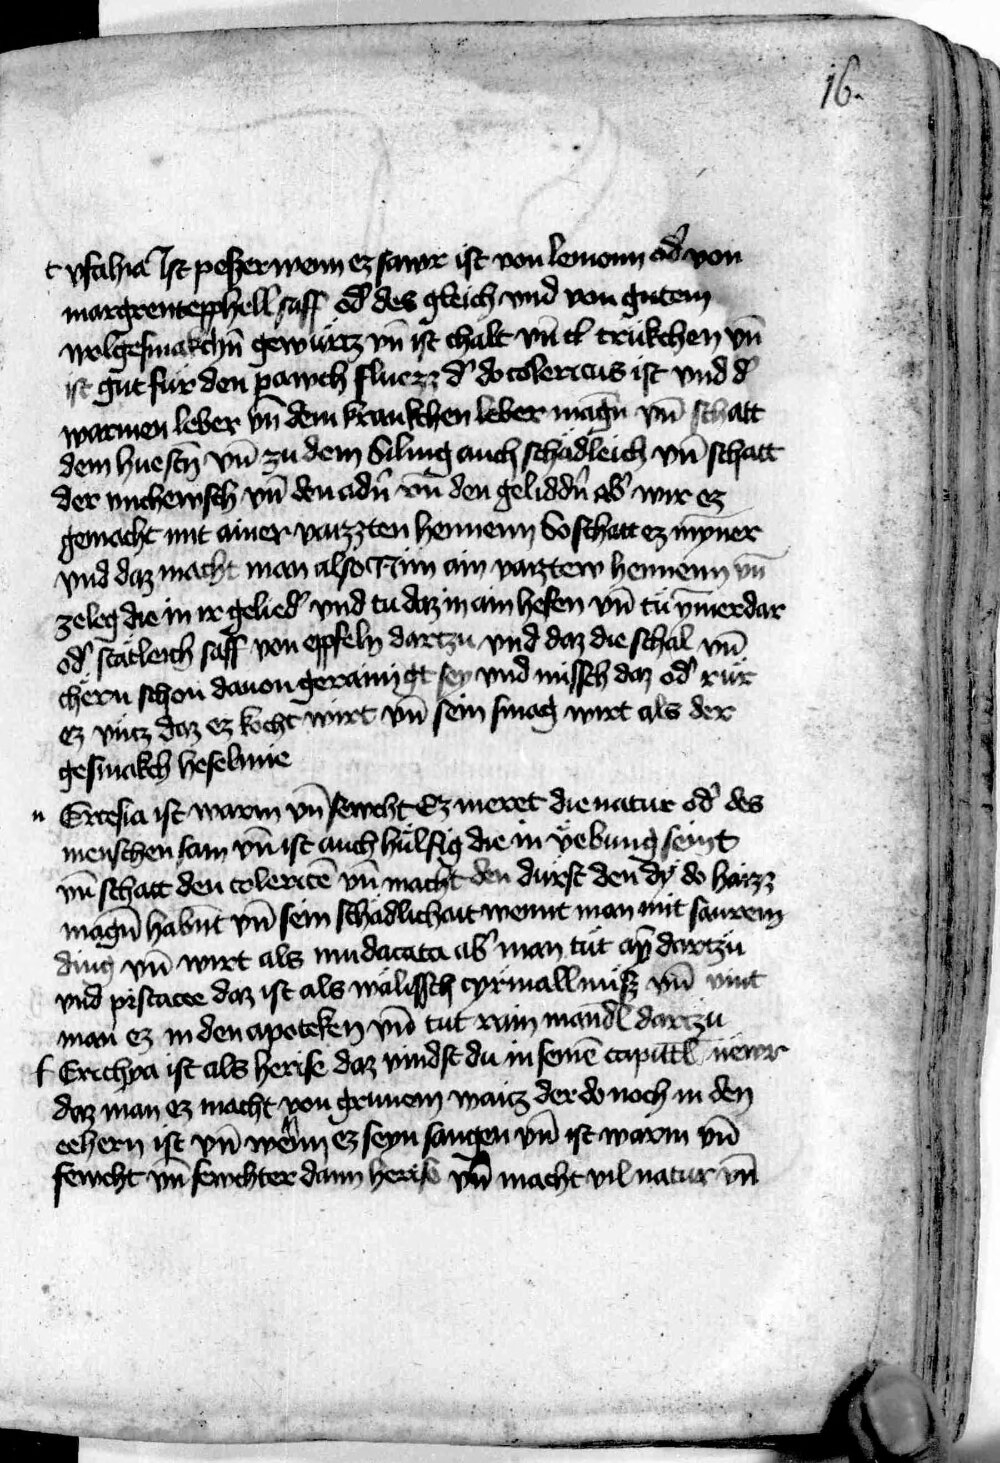 16.
t vfahia Ist peszer wenn ez sawr ist von lemonn od' von
margrentepphell saff od' des gleich vnd von gutem
wolgesmakchn̄ gewürtz vn̄ ist chalt vn̄ trükchen vn̄
ist gut für den pawch fluezz d' do colericus ist vnd d'
warmen leber vn̄ dem krankchen leber magn̄ vn̄ schatt
dem huestn̄ vn̄ zu dem Siling auch schädleich vn̄ schatt
der vnchewsch vn̄ den adn̄ vn̄ den geliddn̄ ab' wir ez
gemacht mit ainer vaizzten hennenn So schatt ez mynner
vnd daz macht man also Nim ain vaiztew hennenn vn̄
zeleg die in ir gelied' vnd tu daz in ain hefen vn̄ tu ymerdar
od' stätleich saff von epfeln dartzu vnd daz die schal vn̄
chern schon dauon gerainigt sey vnd missch daz od' rür
ez vntz daz ez kocht wirt vn̄ sein smag wirt als der
gesmakch heselmie
n Ercesia ist warm vn̄ fewcht Ez meret die natur od' des
menschen sam vn̄ ist auch hülfig die in yebung seint
vn̄ schatt den colericē vn̄ macht den dürst den dy do haizz
magn̄ habnt vn̄ sein schädlichait wennt man mit saurem
ding vn̄ wirt als mudacata ab' man tüt ay dartzu
vnd pistacee daz ist als wälissch cyrmallnüsz vn̄ vint
man ez in den apoteken vn̄ tut rain mandl dartzu
f Erichya ist als herise daz vindst du in seinē capittl newr
daz man ez macht von grunem waitz der do noch in den
eehern ist vn̄ wenn ez seyn sangen vn̄ ist warm vn̄
fewcht vn̄ fewchter dann heriso vn̄ macht vil natur vn̄